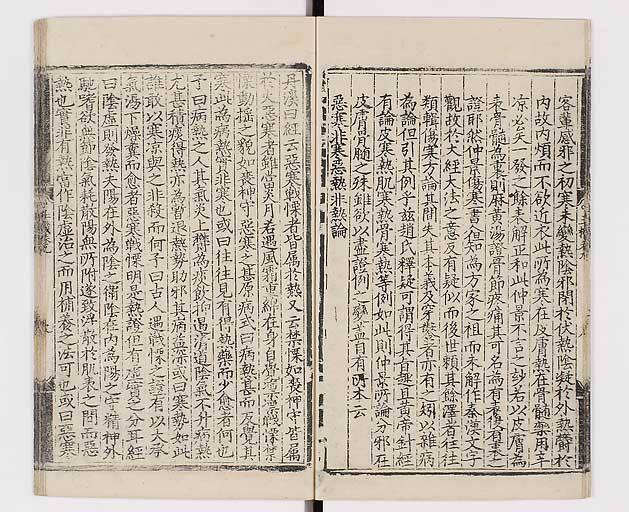 客薰感邪之初寒未變熱陰邪閉於伏熱陰凝於外熱鬱於
内故内煩而不欲近衣此所為寒在皮膚熱在骨髓藥用辛
凉必矣一發之餘表解正和此仲景不言之妙若以皮膚為
表骨髓為裏則麻黄湯證骨節疼痛其可名為有表復有裏之
證耶然仲景傷寒書人但知為方家之祖而未解作秦漢文字
觀故於大經大法之意反有疑似而後世賴其餘澤者往往
類輯傷寒方論其間失其本義及穿鑿者亦有之矧以雜病
為論但引其例乎兹趙氏釋疑可謂得其旨趣且黄帝針經
有論皮寒熱肌寒熱骨寒熱等例如此則仲景所論分邪在
皮膚骨髓之殊雖欲以盡證例之變蓋自有所本云
惡寒非寒惡熱非熱論
丹溪曰經云惡寒戰慄者皆屬於熱又云禁慄如喪神守皆屬
於火惡寒者雖當炎月若遇風霜重綿在身自覺凛凛戰慄禁
慄動揺之貌如喪神守惡寒之甚原病式曰病熱甚而反覺其
寒此為病熱實非寒也或曰往往見有得熱藥而少愈者何也
子曰病熱之人其氣炎上欝為痰飲抑遏清道陰氣不升病熱
尤甚積痰得熱亦為暫退熱勢助邪其病益深或曰寒勢如此
誰敢以寒凉與之非殺而何子曰古人遇戰慄之證有以大承
氣湯下燥糞而愈者惡寒戰慄明是熱證但有虛實之分耳經
曰陰虛則發熱夫陽在外為陰之衛陰在内為陽之守精神外
馳嗜欲無節陰氣耗散陽無所附遂致浮散於肌表之間而惡
熱也實非有熱當作陰虛治之而用補養之法可也或曰惡寒